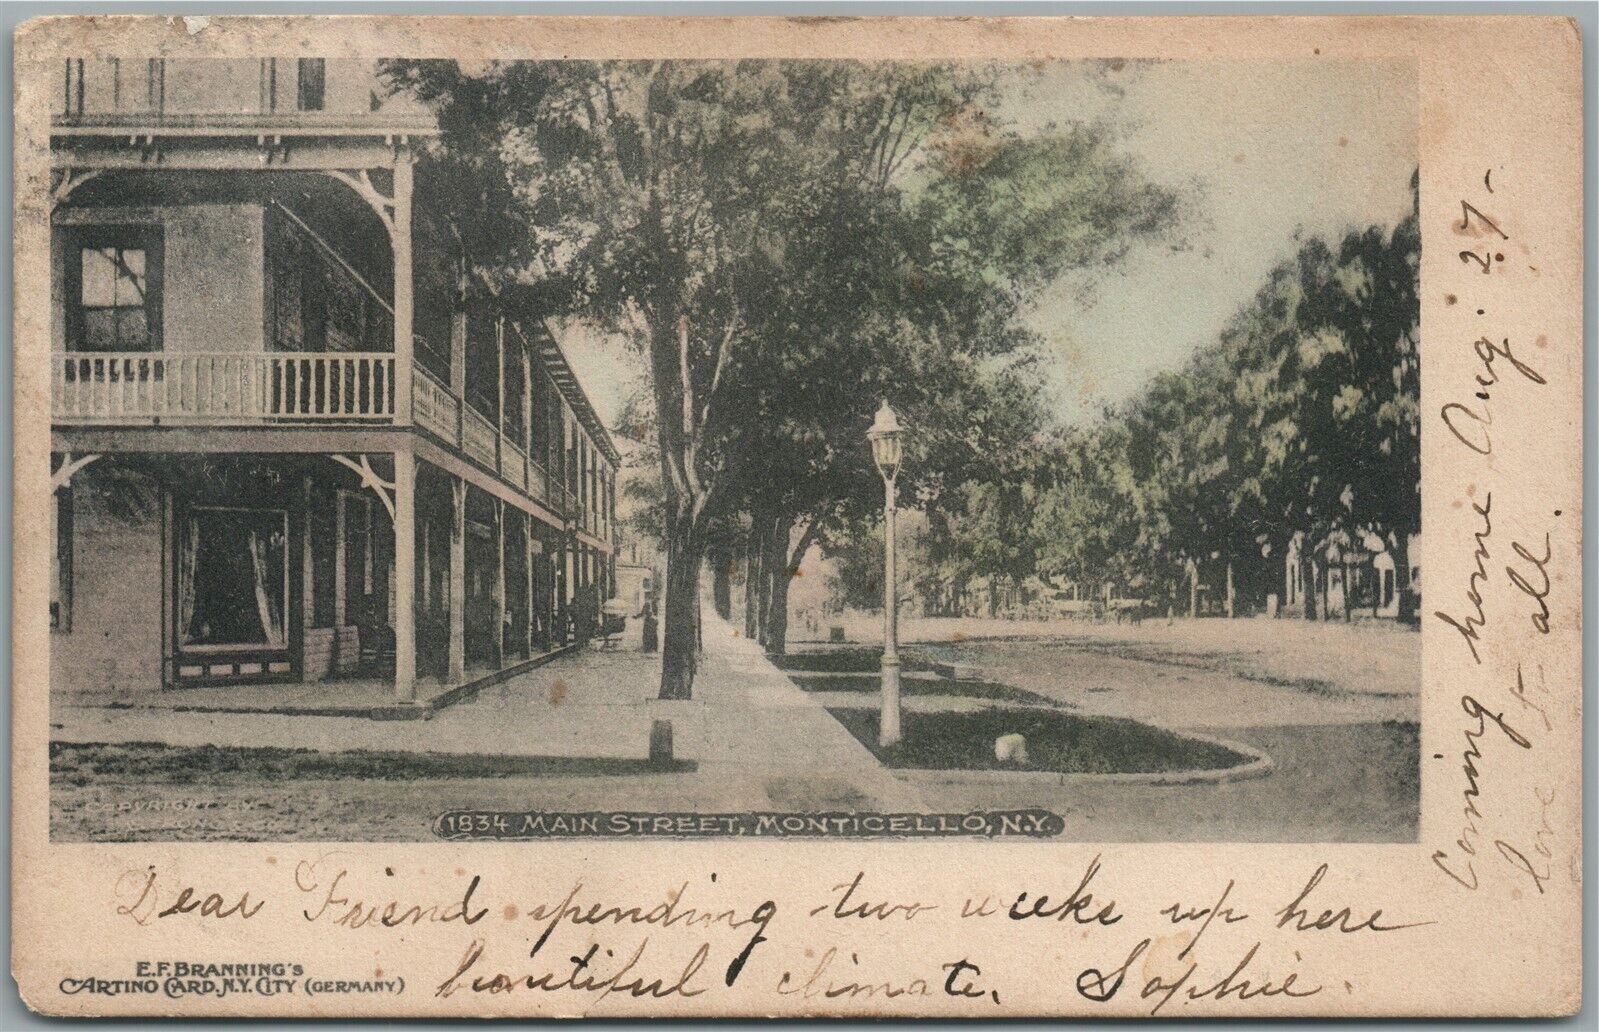 COPYRIGHT BY
1834 MAIN STREET, MONTICELLO, N.Y.
Dear Friend spending two weeks up here
beautiful climate. Sophie.
E.F. BRANNING'S
ARTINO CARD. N.Y. CITY (GERMANY)
Coming home Aug. 27-
love to all.